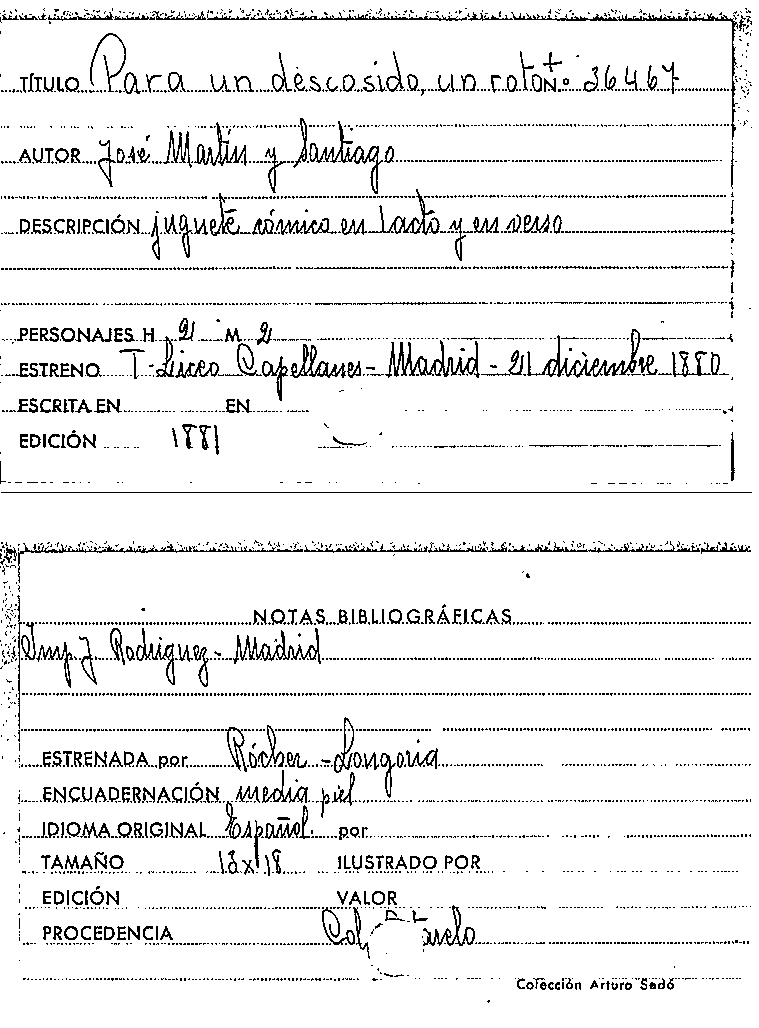 TÍTULO Para un descosido, un roto N.º 36467
AUTOR José Martín y Santiago
DESCRIPCIÓN juguete cómico en 1 acto y en verso
PERSONAJES H 2 M 2
ESTRENO T. Liceo Capellanes - Madrid - 21 diciembre 1880
ESCRITA EN EN
EDICIÓN 1881
NOTAS BIBLIOGRÁFICAS
Imp J Rodriguez - Madrid
ESTRENADA por - Longoria
ENCUADERNACIÓN media piel
IDIOMA ORIGINAL Español. por
TAMAÑO 13x18 ILUSTRADO POR
EDICIÓN VALOR
PROCEDENCIA
Colección Arturo Sedó